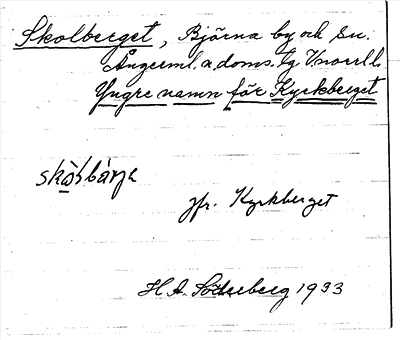 Skolberget, Björna by och sn.
Ångerml. a. doms. tg V:norrl. l.
Yngre namn för Kyrkberget
jfr. Kyrkberget
H. A. Söderberg 1933